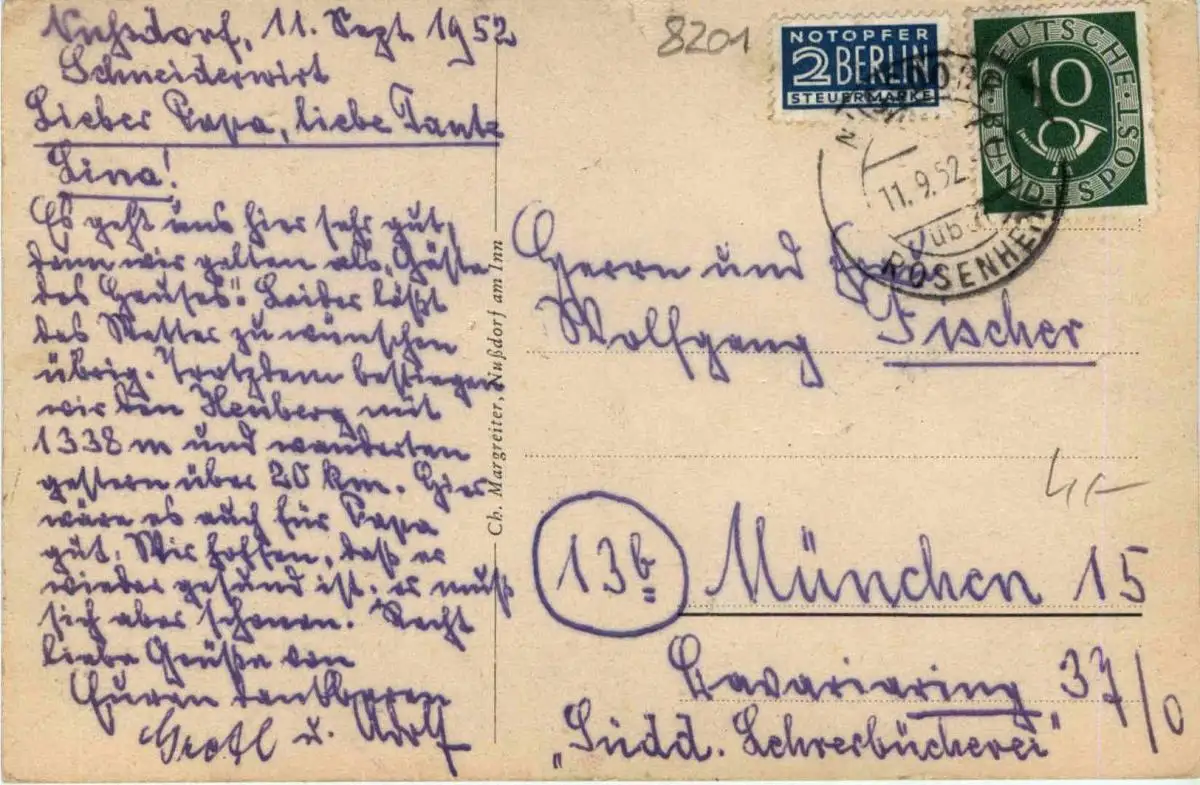 Nußdorf, 11. Sept. 1952
Schneiderwirt
Lieber Papa, liebe Tante
Lina!
Es geht uns hier sehr gut,
denn wir gelten als „Gäste
des Hauses". Leider läßt
das Wetter zu wünschen
übrig. Trotzdem bestiegen
wir den Heuberg mit
1338 m und wanderten
gestern über 20 km. Hier
wäre es auch für Papa
gut. Wir hoffen, daß er
wieder gesund ist; er muß
sich aber schonen. Recht
liebe Grüße von
Euren dankbaren
Gretl u. Adolf
Ch. Margreiter, Nußdorf am Inn
8201
NOTOPFER
2 BERLIN
STEUERMARKE
DEUTSCHE BUNDESPOST
10
11.9.52
über
ROSENHEIM
Herrn und Frau
Wolfgang Fischer
13b
München 15
Bavariaring 37/0
„Südd. Lehrerbücherei"